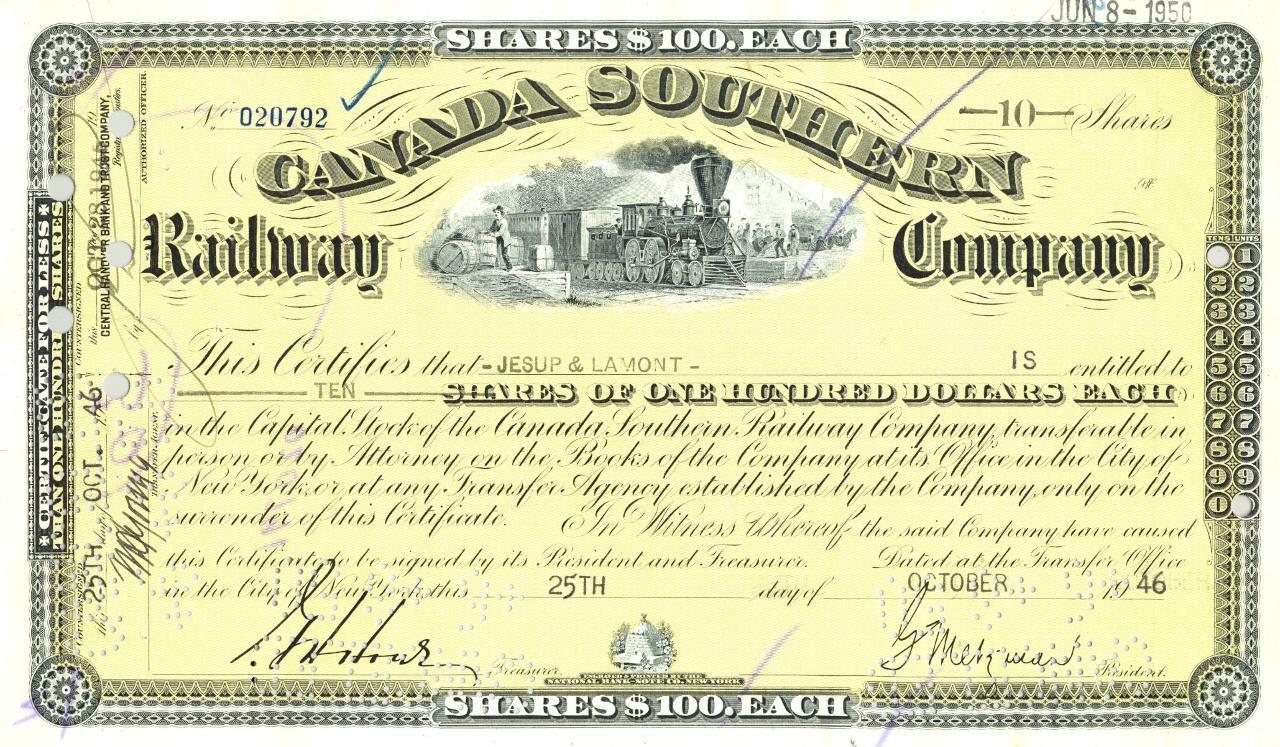 JUN 8 - 1950
SHARES $100. EACH
No 020792
—10— Shares
CANADA SOUTHERN
Railway Company
This Certifies that - JESUP & LAMONT - IS entitled to
TEN SHARES OF ONE HUNDRED DOLLARS EACH
in the Capital Stock of the Canada Southern Railway Company, transferable in
person or by Attorney on the Books of the Company at its Office in the City of
New York, or at any Transfer Agency established by the Company, only on the
surrender of this Certificate. In Witness Whereof, the said Company have caused
this Certificate to be signed by its President and Treasurer. Dated at the Transfer Office
in the City of New York, this 25TH day of OCTOBER 1946
Treasurer
President.
ENGRAVED & PRINTED BY THE
NATIONAL BANK-NOTE CO. NEW YORK
SHARES $100. EACH
CERTIFICATE FOR LESS
THAN ONE HUNDRED SHARES
COUNTERSIGNED
this 25TH day of OCT. 1946
COUNTERSIGNED
this OCT 28 1946
CENTRAL HANOVER BANK AND TRUST COMPANY,
by
AUTHORIZED OFFICER.
TENS UNITS
1
2 2
3 3
4 4
5 5
6 6
7 7
8 8
9 9
0